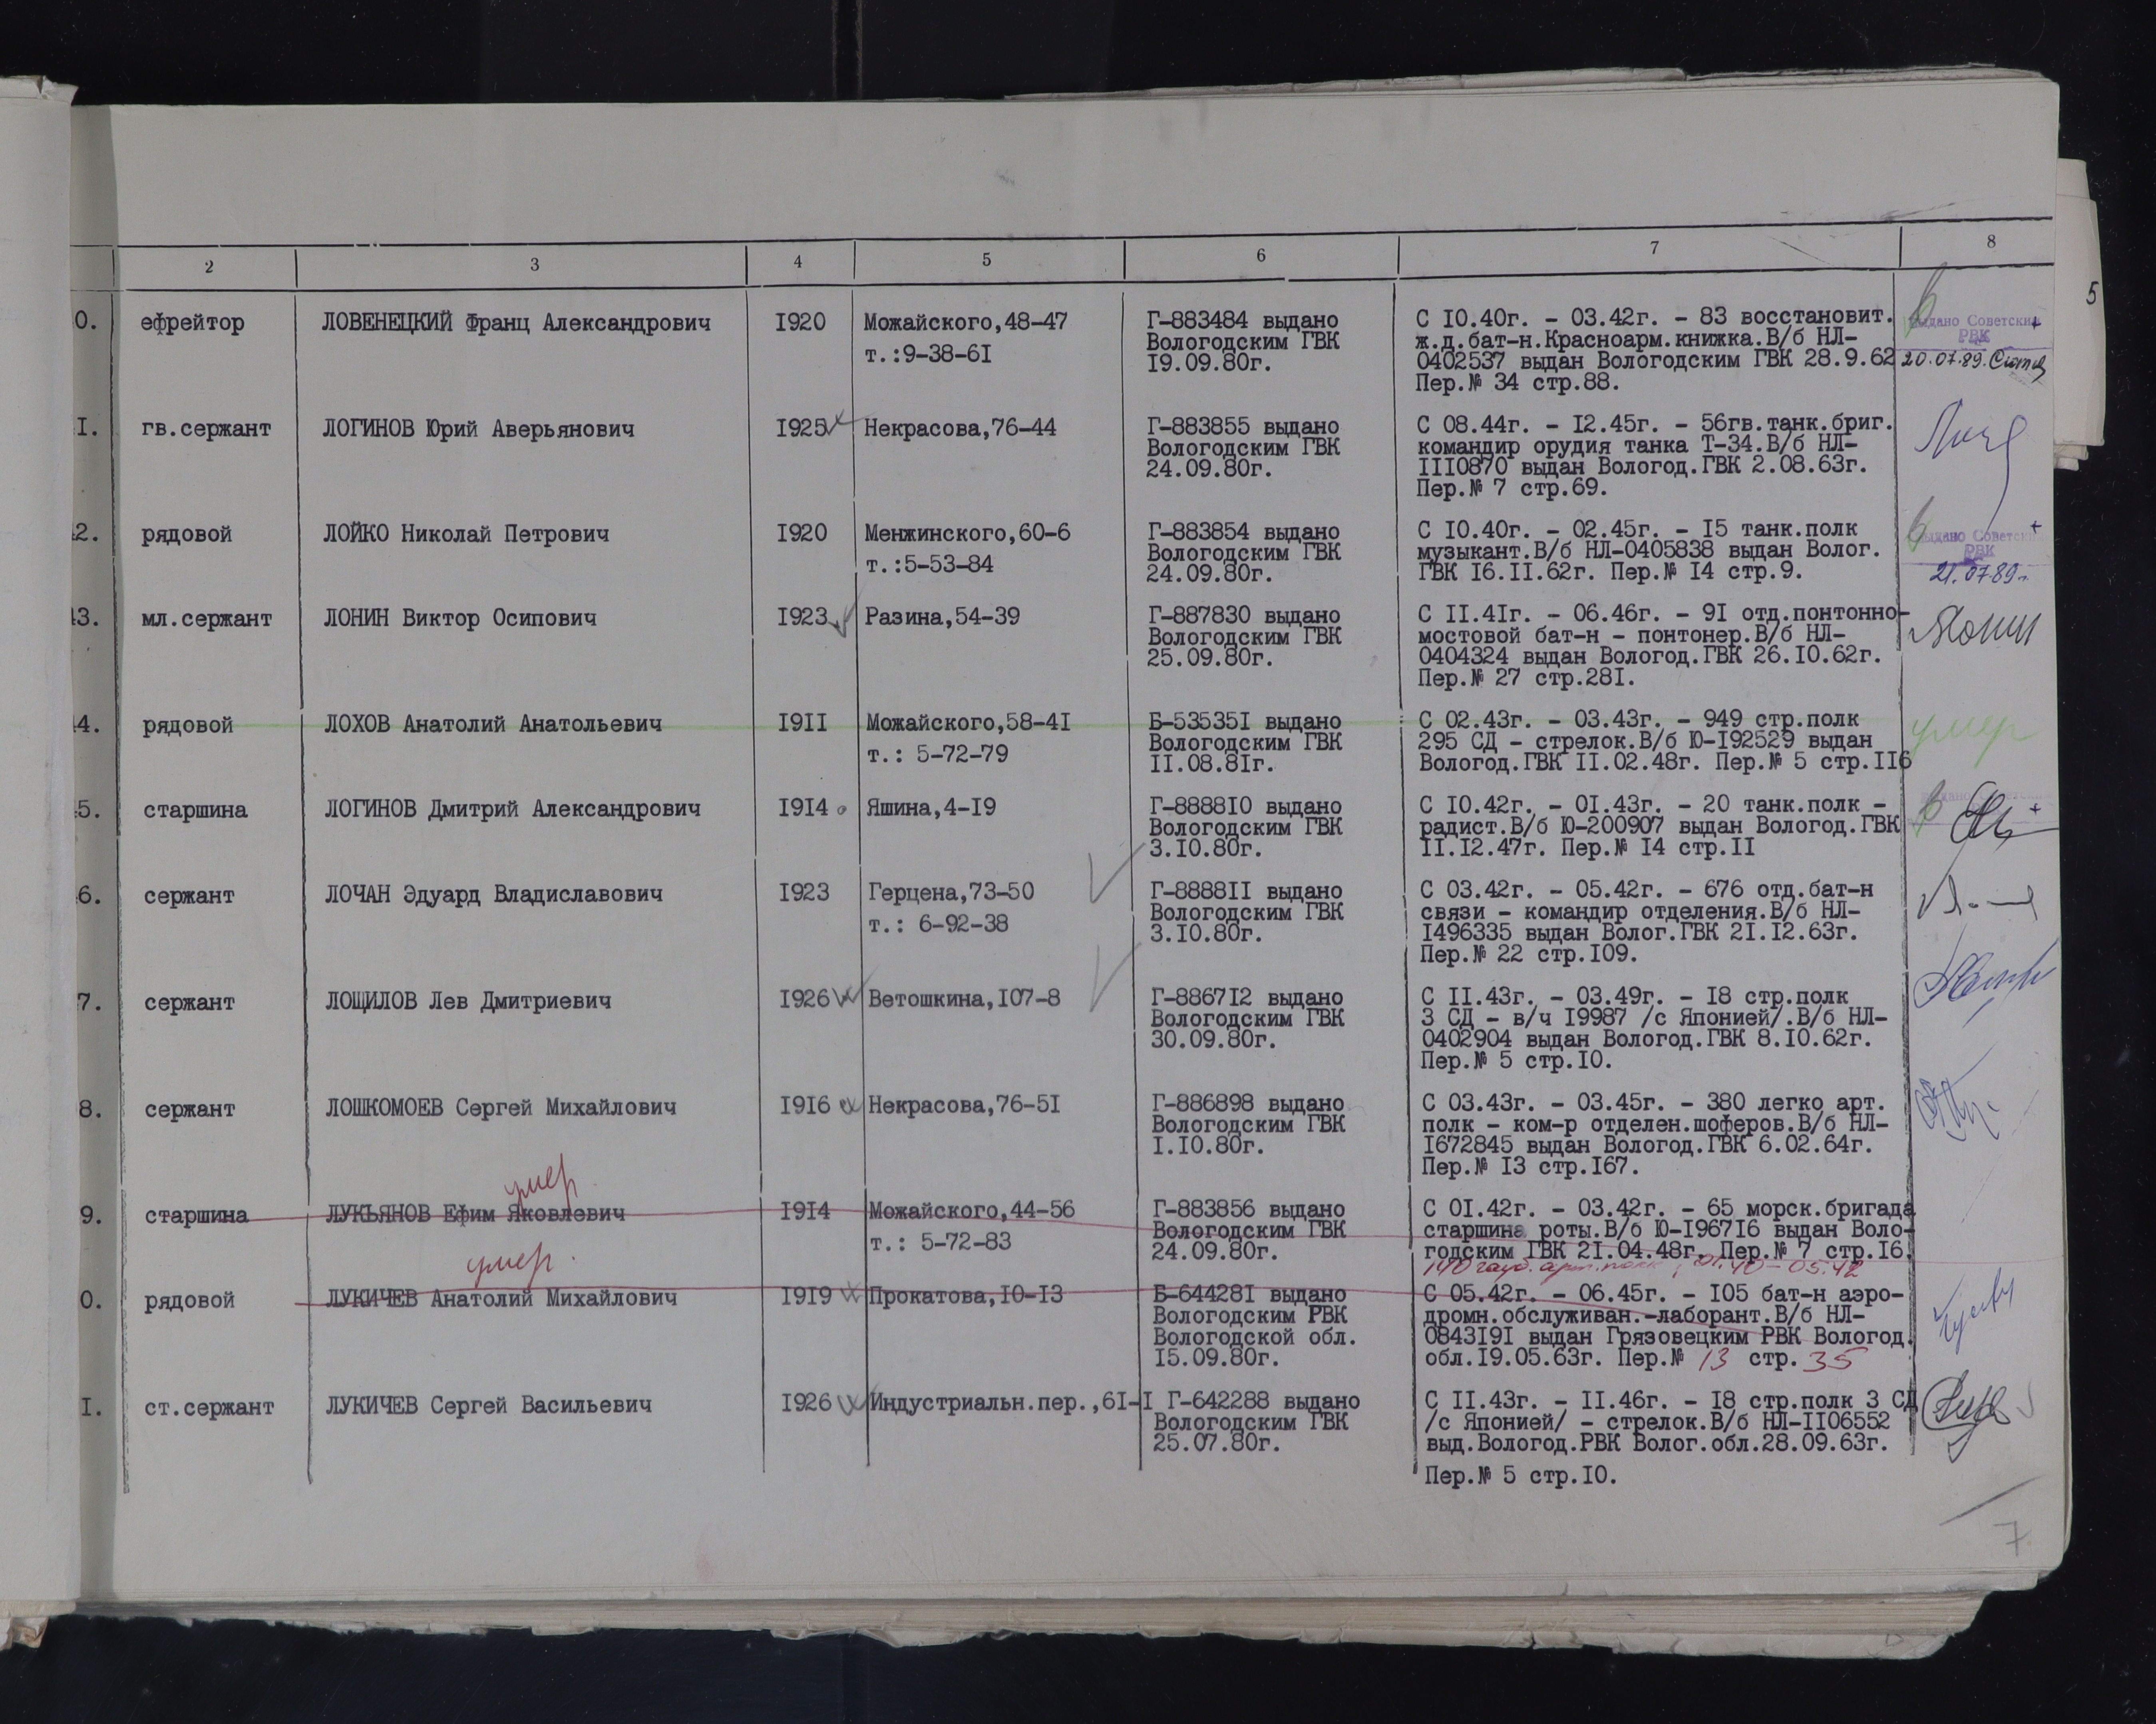 2 3 4 5 6 7 8
5
0. ефрейтор ЛОВЕНЕЦКИЙ Франц Александрович 1920 Можайского,48-47 Г-883484 выдано С 10.40г. - 03.42г. - 83 восстановит.
т.:9-38-61 Вологодским ГВК ж.д.бат-н.Красноарм.книжка.В/б НЛ- Выдано Советским
19.09.80г. 0402537 выдан Вологодским ГВК 28.9.62 РВК
Пер.№ 34 стр.88. 20.07.89.
1. гв.сержант ЛОГИНОВ Юрий Аверьянович 1925 Некрасова,76-44 Г-883855 выдано С 08.44г. - 12.45г. - 56гв.танк.бриг.
Вологодским ГВК командир орудия танка Т-34.В/б НЛ-
24.09.80г. 1110870 выдан Вологод.ГВК 2.08.63г.
Пер.№ 7 стр.69.
2. рядовой ЛОЙКО Николай Петрович 1920 Менжинского,60-6 Г-883854 выдано С 10.40г. - 02.45г. - 15 танк.полк
т.:5-53-84 Вологодским ГВК музыкант.В/б НЛ-0405838 выдан Волог. Выдано Советским
24.09.80г. ГВК 16.11.62г. Пер.№ 14 стр.9. РВК
21.07.89г.
43. мл.сержант ЛОНИН Виктор Осипович 1923 Разина,54-39 Г-887830 выдано С 11.41г. - 06.46г. - 91 отд.понтонно-
Вологодским ГВК мостовой бат-н - понтонер.В/б НЛ- Лонин
25.09.80г. 0404324 выдан Вологод.ГВК 26.10.62г.
Пер.№ 27 стр.281.
4. рядовой ЛОХОВ Анатолий Анатольевич 1911 Можайского,58-41 Б-535351 выдано С 02.43г. - 03.43г. - 949 стр.полк умер
т.: 5-72-79 Вологодским ГВК 295 СД - стрелок.В/б Ю-192529 выдан
11.08.81г. Вологод.ГВК 11.02.48г. Пер.№ 5 стр.116
5. старшина ЛОГИНОВ Дмитрий Александрович 1914 Яшина,4-19 Г-888810 выдано С 10.42г. - 01.43г. - 20 танк.полк -
Вологодским ГВК радист.В/б Ю-200907 выдан Вологод.ГВК
3.10.80г. 11.12.47г. Пер.№ 14 стр.11
6. сержант ЛОЧАН Эдуард Владиславович 1923 Герцена,73-50 Г-888811 выдано С 03.42г. - 05.42г. - 676 отд.бат-н
т.: 6-92-38 Вологодским ГВК связи - командир отделения.В/б НЛ-
3.10.80г. 1496335 выдан Волог.ГВК 21.12.63г.
Пер.№ 22 стр.109.
7. сержант ЛОЩИЛОВ Лев Дмитриевич 1926 Ветошкина,107-8 Г-886712 выдано С 11.43г. - 03.49г. - 18 стр.полк
Вологодским ГВК 3 СД - в/ч 19987 /с Японией/.В/б НЛ-
30.09.80г. 0402904 выдан Вологод.ГВК 8.10.62г.
Пер.№ 5 стр.10.
8. сержант ЛОШКОМОЕВ Сергей Михайлович 1916 Некрасова,76-51 Г-886898 выдано С 03.43г. - 03.45г. - 380 легко арт.
Вологодским ГВК полк - ком-р отделен.шоферов.В/б НЛ-
1.10.80г. 1672845 выдан Вологод.ГВК 6.02.64г.
Пер.№ 13 стр.167.
умер
9. старшина ЛУКЪЯНОВ Ефим Яковлевич 1914 Можайского,44-56 Г-883856 выдано С 01.42г. - 03.42г. - 65 морск.бригада
т.: 5-72-83 Вологодским ГВК старшина роты.В/б Ю-196716 выдан Воло-
24.09.80г. годским ГВК 21.04.48г. Пер.№ 7 стр.16.
умер. 140 гауб.арт.полк, 01.40-05.42
0. рядовой ЛУКИЧЕВ Анатолий Михайлович 1919 Прокатова,10-13 Б-644281 выдано С 05.42г. - 06.45г. - 105 бат-н аэро-
Вологодским РВК дромн.обслуживан.-лаборант.В/б НЛ-
Вологодской обл. 0843191 выдан Грязовецким РВК Вологод.
15.09.80г. обл.19.05.63г. Пер.№ 13 стр. 35
1. ст.сержант ЛУКИЧЕВ Сергей Васильевич 1926 Индустриальн.пер.,61-1 Г-642288 выдано С 11.43г. - 11.46г. - 18 стр.полк 3 СД
Вологодским ГВК /с Японией/ - стрелок.В/б НЛ-1106552
25.07.80г. выд.Вологод.РВК Волог.обл.28.09.63г.
Пер.№ 5 стр.10.
7